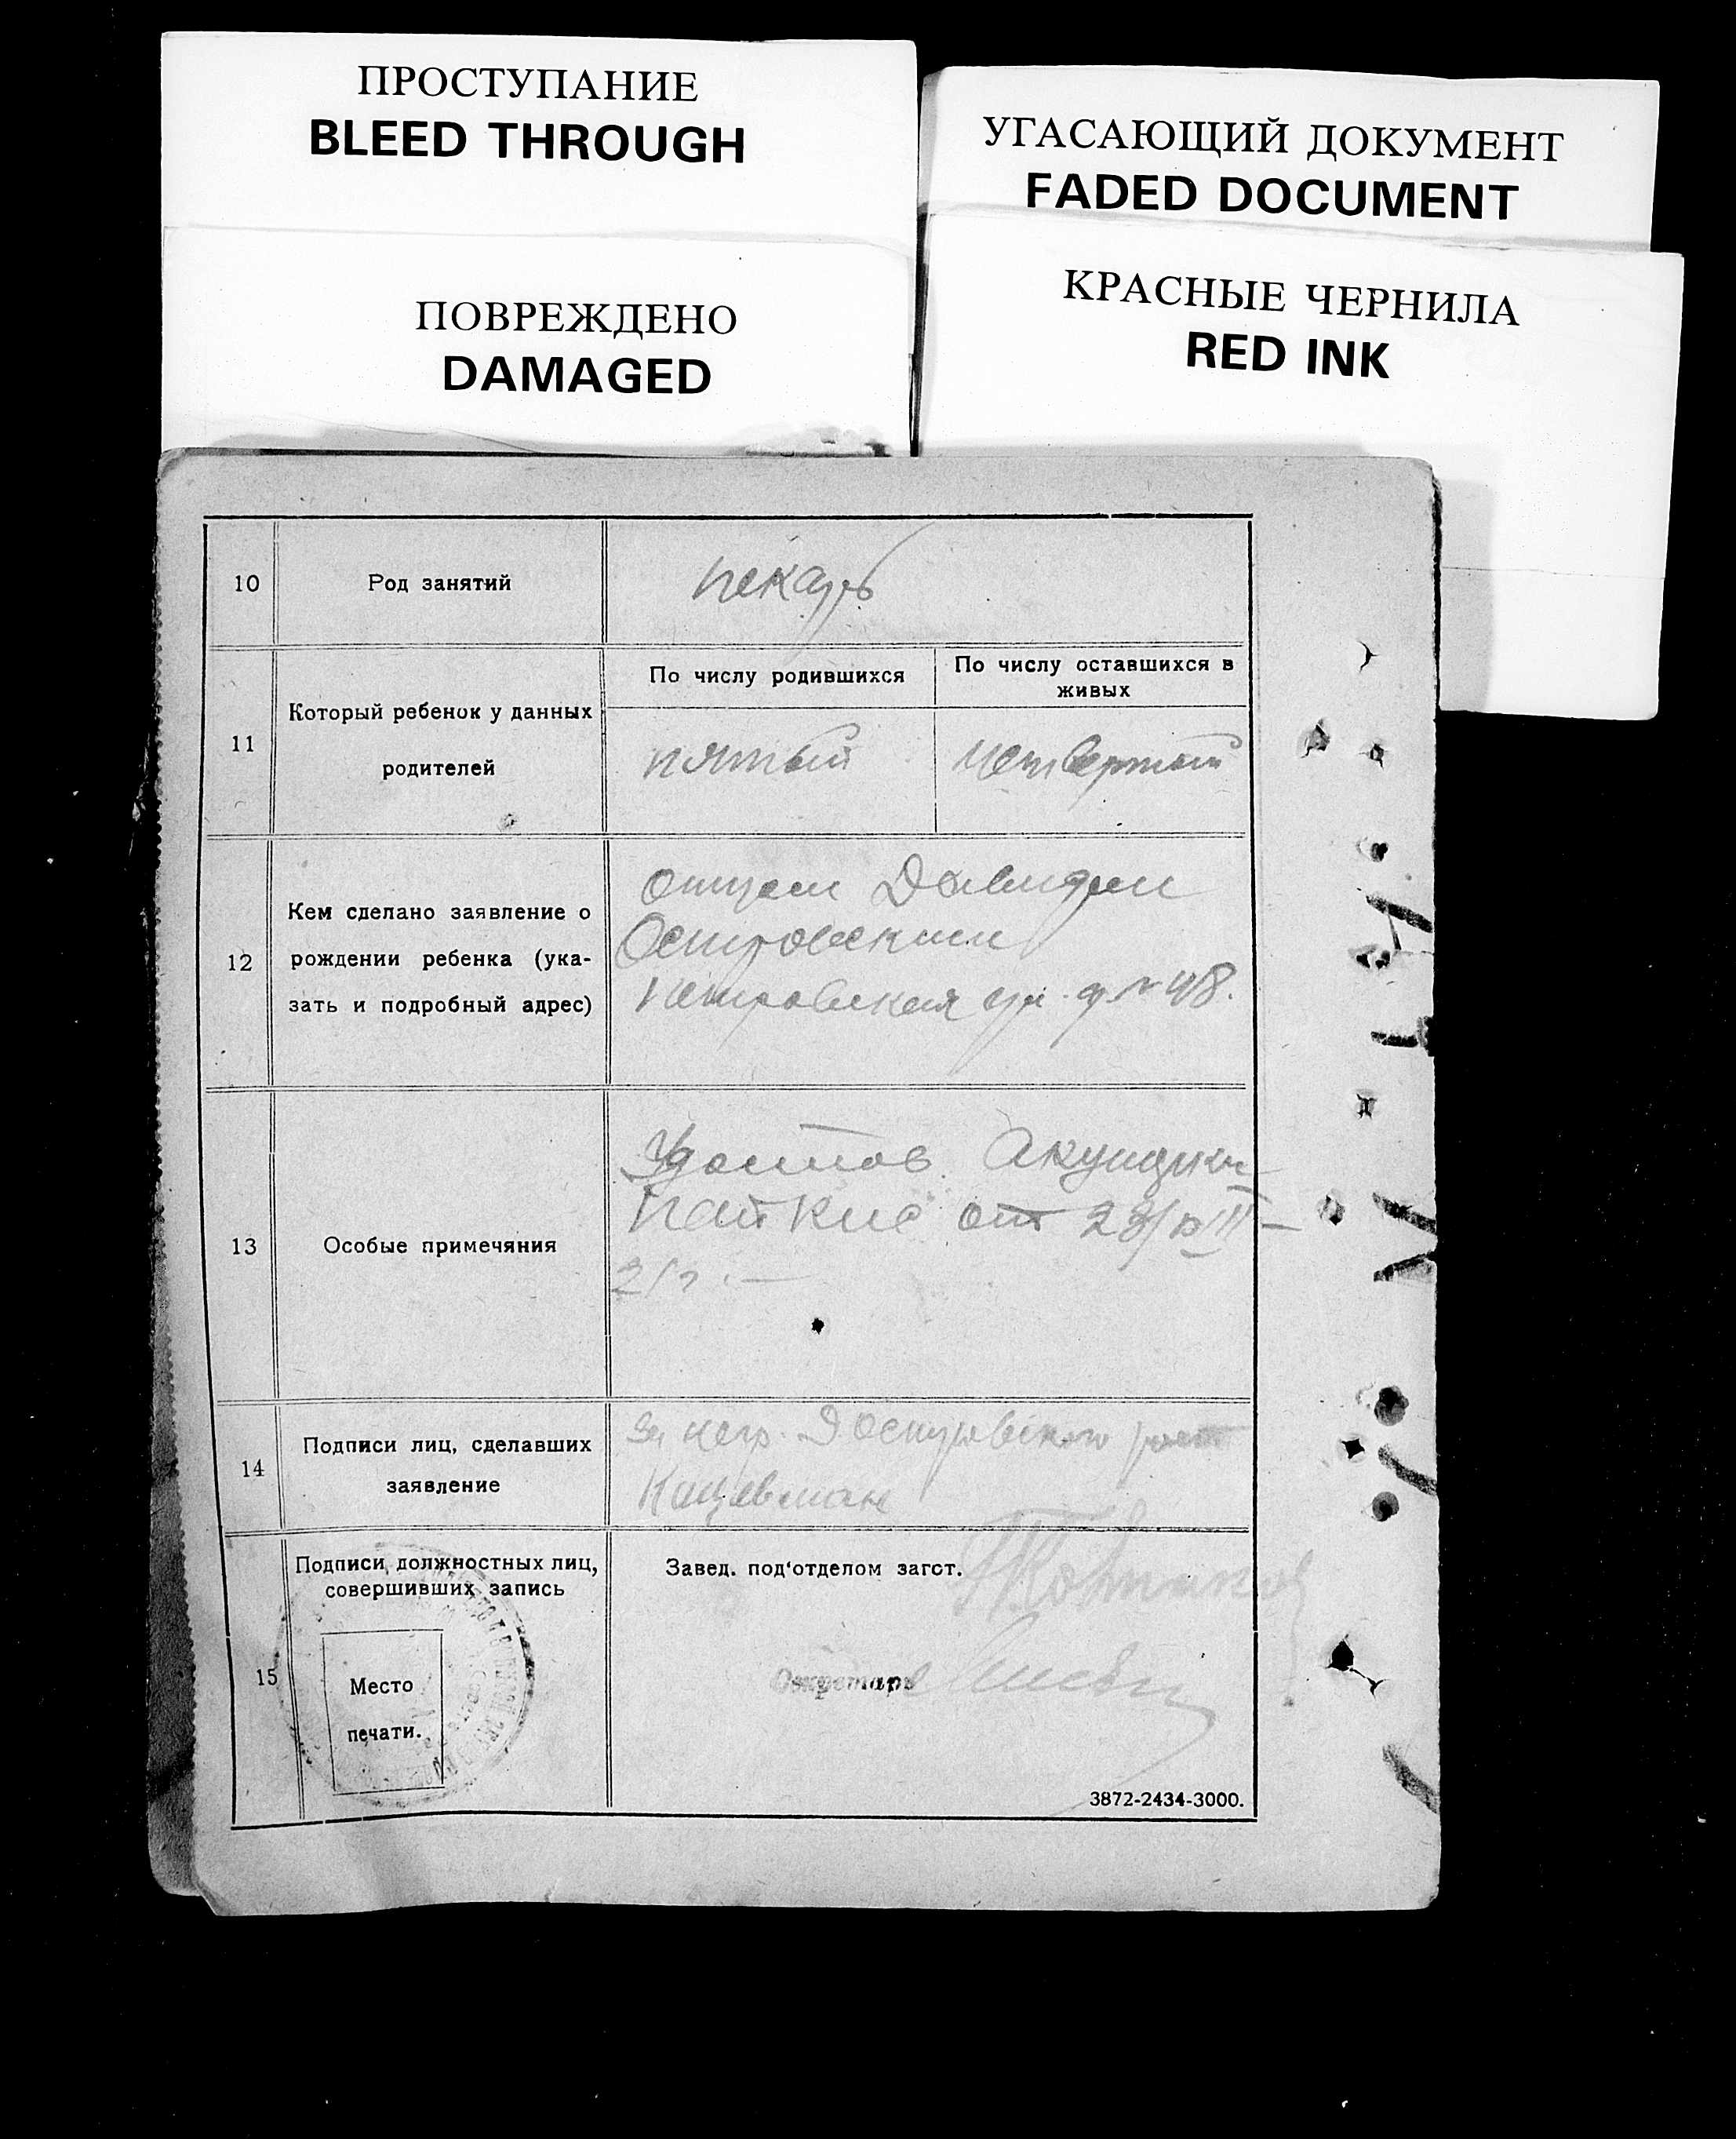 ПРОСТУПАНИЕ
BLEED THROUGH
УГАСАЮЩИЙ ДОКУМЕНТ
FADED DOCUMENT
ПОВРЕЖДЕНО
DAMAGED
КРАСНЫЕ ЧЕРНИЛА
RED INK
10
Род занятий
пекарь
11
Который ребенок у данных
родителей
По числу родившихся
пятый
По числу оставшихся в
живых
четвертый
12
Кем сделано заявление о
рождении ребенка (ука-
зать и подробный адрес)
отцем Давидом
Островским
Петровская ул. д № 48.
13
Особые примечяния
Удостов. Акушерки
от 23/VIII-
21 г. —
14
Подписи лиц, сделавших
заявление
За негр. Д Островского
15
Подписи должностных лиц,
совершивших запись
Место
печати.
Завед. под‘отделом загст.
Секретарь
3872-2434-3000.